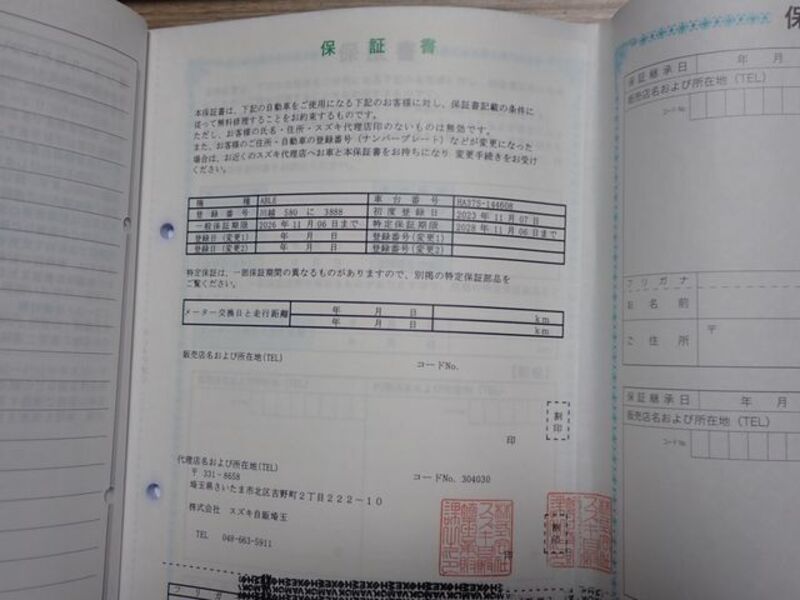 保証書
本保証書は、下記の自動車をご使用になる下記のお客様に対し、保証書記載の条件に
従って無料修理することをお約束するものです。
ただし、お客様の氏名・住所・スズキ代理店印のないものは無効です。
また、お客様のご住所・自動車の登録番号（ナンバープレート）などが変更になった
場合は、お近くのスズキ代理店へお車と本保証書をお持ちになり 変更手続きをお受け
ください。
機種 ABLE 車台番号 HA37S-144608
登録番号 川越 580 に 3888 初度登録日 2023 年 11 月 07 日
一般保証期限 2026 年 11 月 06 日まで 特定保証期限 2028 年 11 月 06 日まで
登録日（変更1） 年 月 日 登録番号（変更1）
登録日（変更2） 年 月 日 登録番号（変更2）
特定保証は、一部保証期間の異なるものがありますので、別掲の特定保証部品を
ご覧ください。
メーター交換日と走行距離 年 月 日 km
年 月 日 km
販売店名および所在地(TEL) コードNo.
割印
印
代理店名および所在地(TEL) コードNo. 304030
〒 331-8658
埼玉県さいたま市北区吉野町２丁目２２２－１０
株式会社 スズキ自販埼玉
割印
TEL 048-663-5911
フリガ
保
保証継承日 年 月
販売店名および所在地（TEL）
コードNo.
フリガナ
お名前
ご住所 〒
保証継承日 年 月
販売店名および所在地（TEL）
コードNo.